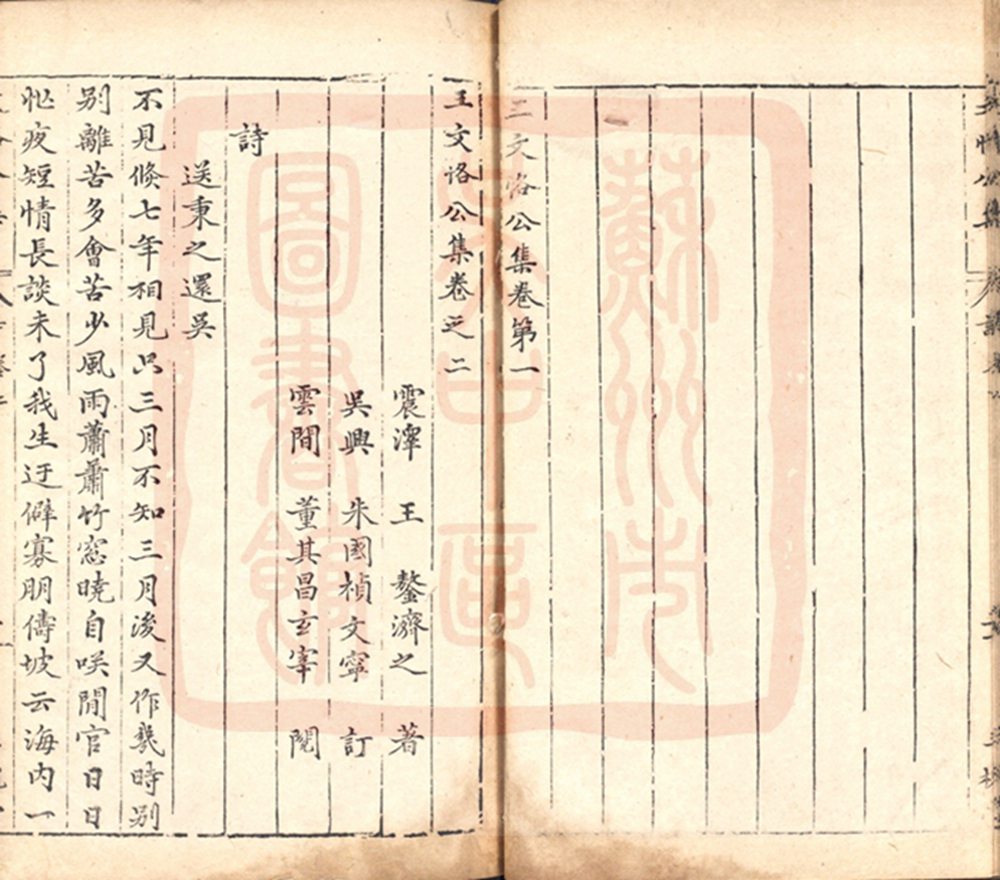 王文恪公集卷第一
王文恪公集卷之二
震澤 王 鏊濟之 著
吳興 朱國楨文寧 訂
雲間 董其昌玄宰 閱
詩
送秉之還吳
不見倏七年相見只三月不知三月後又作幾時別
別離苦多會苦少風雨蕭蕭竹窓曉自咲閒官日日
忙夜短情長談未了我生迂僻寡朋儔坡云海內一
蘇州市
吳中區
圖書館